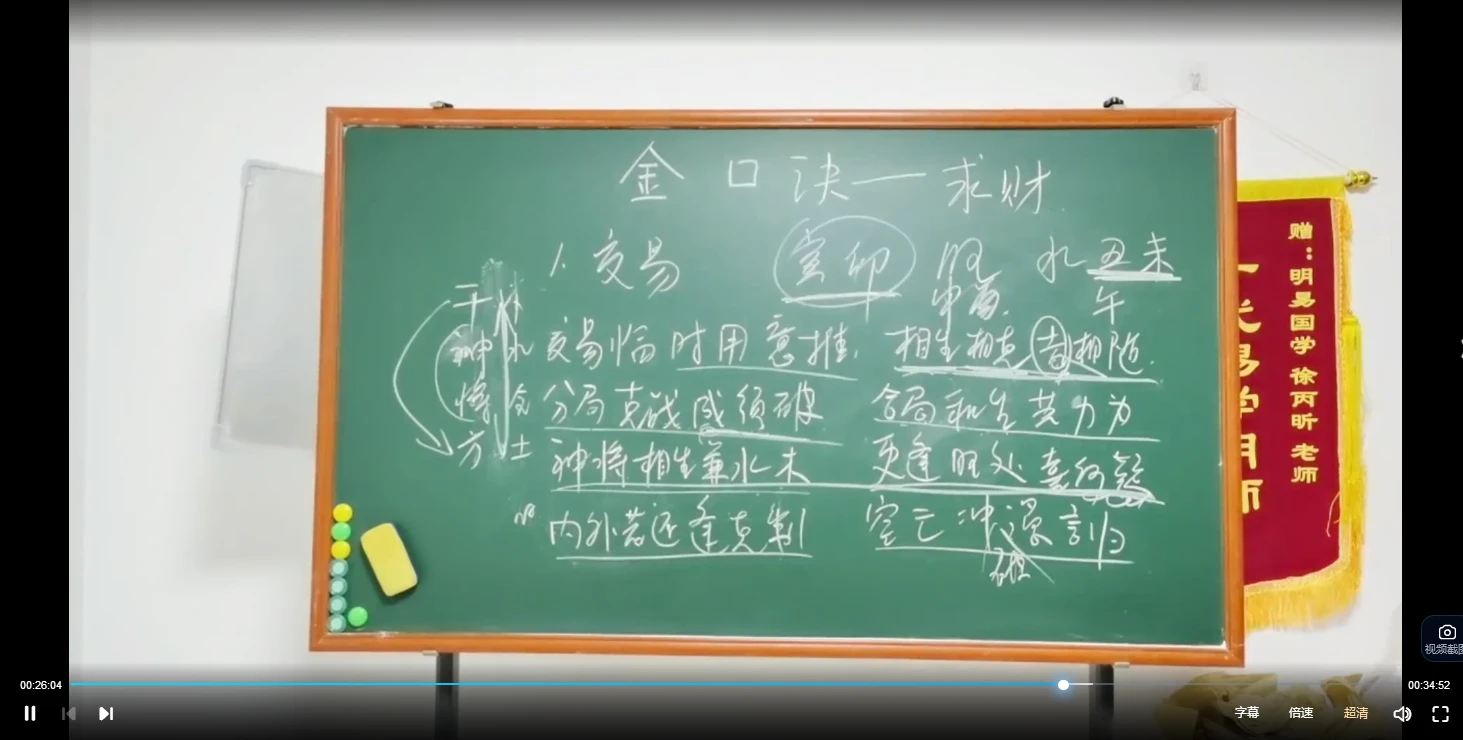 金口诀——求财
1.交易 寅卯 旺 水 丑未
午
干 水
神 水
将 金
方 土
交易临时用意推. 相生相克者相随.
分局克战咸须破 合局和生共力为
神将相生兼水木 更逢旺处喜何疑
内外若还逢克制 空亡冲 言归
破
赠：明易国学 徐丙昕 老师
易学明师
视频截图
00:26:04
00:34:52
字幕 倍速 超清